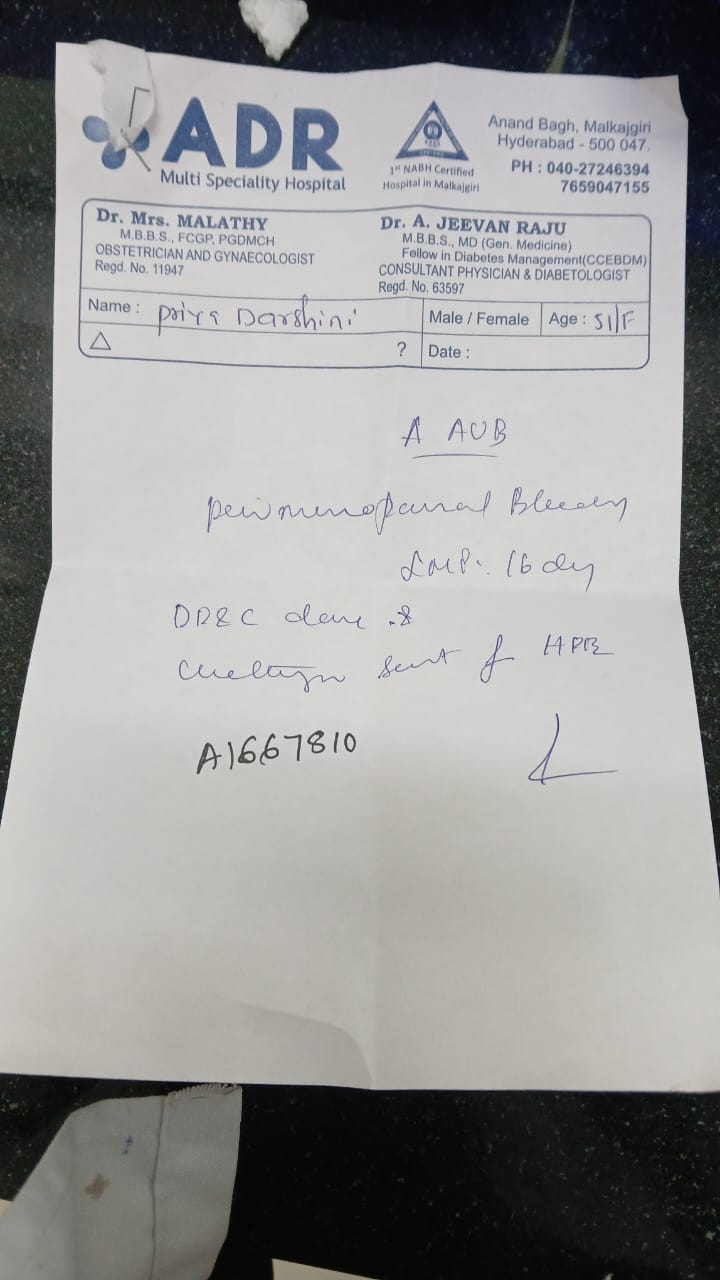 ADR
Multi Speciality Hospital
1st NABH Certified
Hospital in Malkajgiri
Anand Bagh, Malkajgiri
Hyderabad - 500 047.
PH : 040-27246394
7659047155
Dr. Mrs. MALATHY
M.B.B.S., FCGP, PGDMCH
OBSTETRICIAN AND GYNAECOLOGIST
Regd. No. 11947
Dr. A. JEEVAN RAJU
M.B.B.S., MD (Gen. Medicine)
Fellow in Diabetes Management(CCEBDM)
CONSULTANT PHYSICIAN & DIABETOLOGIST
Regd. No. 63597
Name : Priya Darshini
Male / Female
Age : 51/F
△ ?
Date :
AUB
perimenopausal Bleeding
LMP: 16 day
DD&C done &
sent f HPE
A1667810